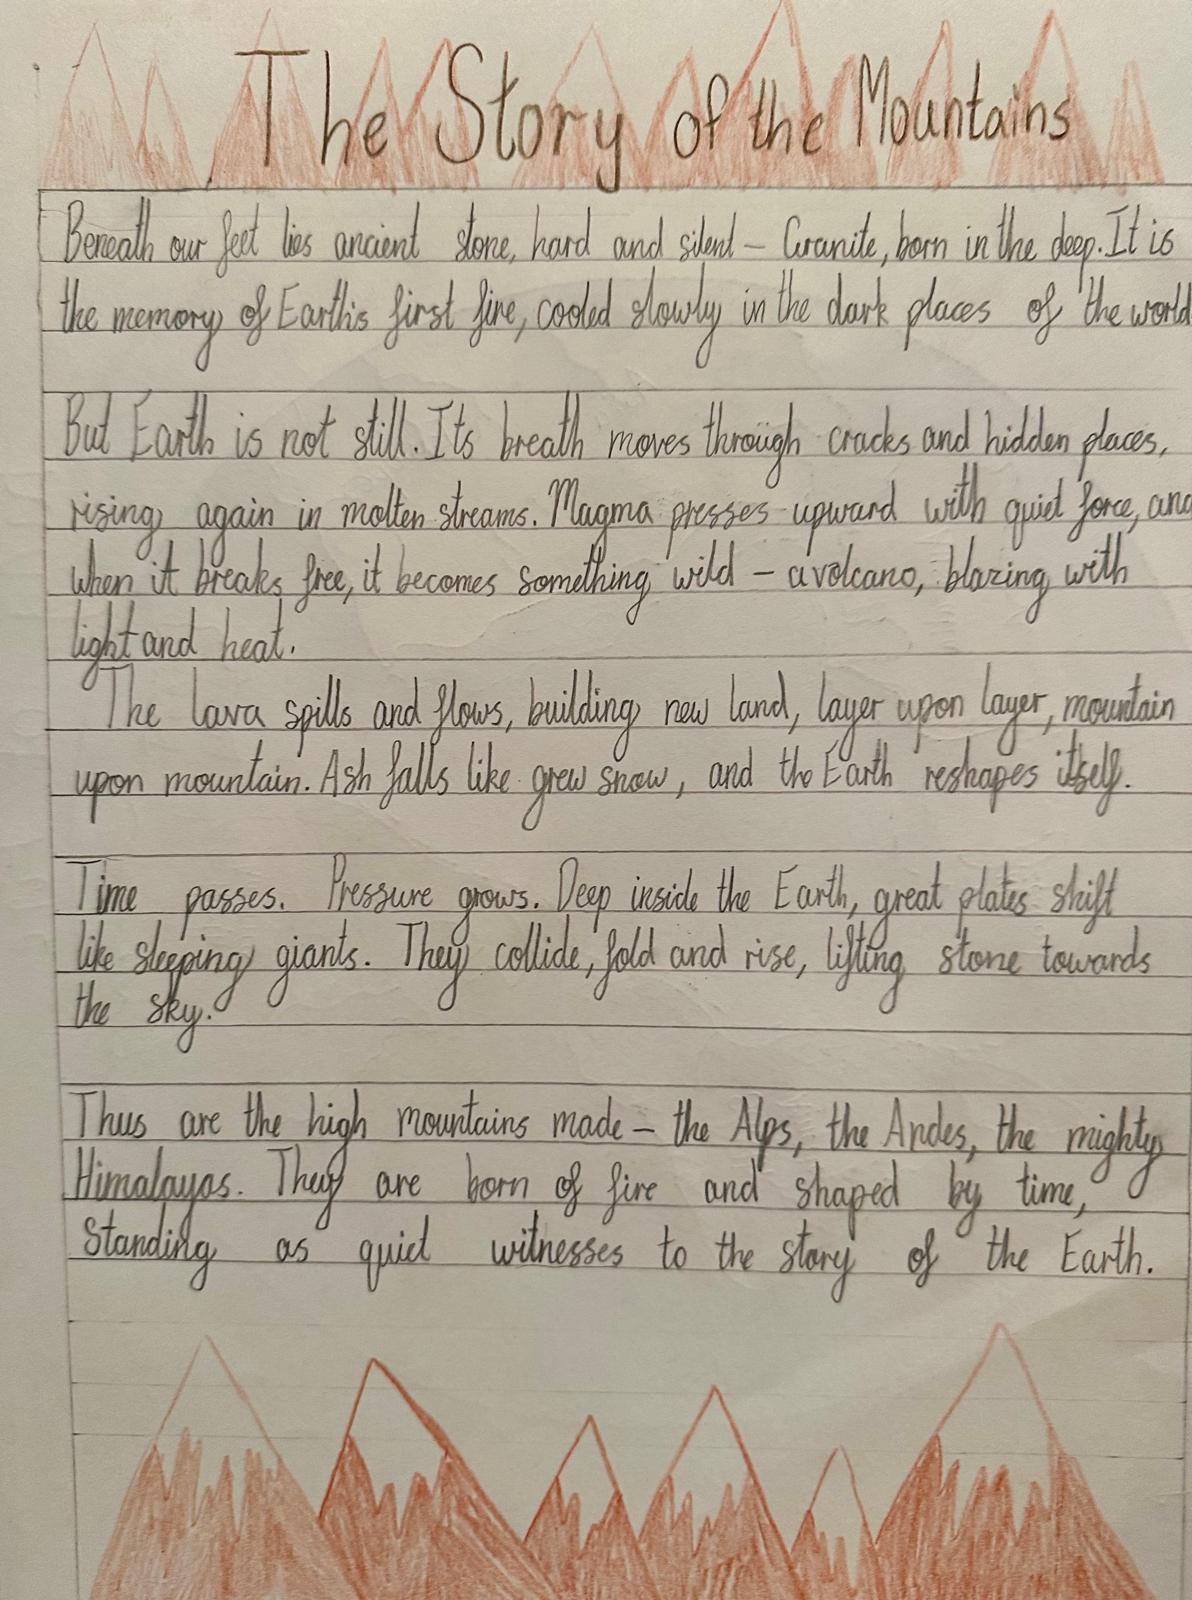 The Story of the Mountains
Beneath our feet lies ancient stone, hard and silent – Granite, born in the deep. It is
the memory of Earth's first fire, cooled slowly in the dark places of the world
But Earth is not still. Its breath moves through cracks and hidden places,
rising again in molten streams. Magma presses upward with quiet force, and
when it breaks free, it becomes something wild – a volcano, blazing with
light and heat.
The lava spills and flows, building new land, layer upon layer, mountain
upon mountain. Ash falls like grew snow, and the Earth reshapes itself.
Time passes. Pressure grows. Deep inside the Earth, great plates shift
like sleeping giants. They collide, fold and rise, lifting stone towards
the sky.
Thus are the high mountains made – the Alps, the Andes, the mighty
Himalayas. They are born of fire and shaped by time,
Standing as quiet witnesses to the story of the Earth.